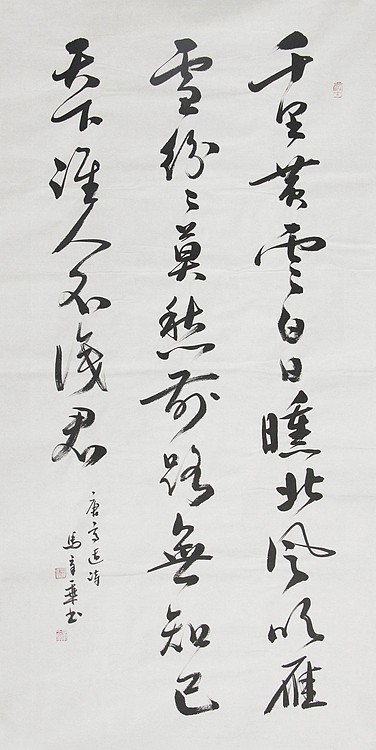 千里黃雲白日曛北風吹雁
雪紛々莫愁前路無知己
天下誰人不識君
唐高適詩
馬 華書